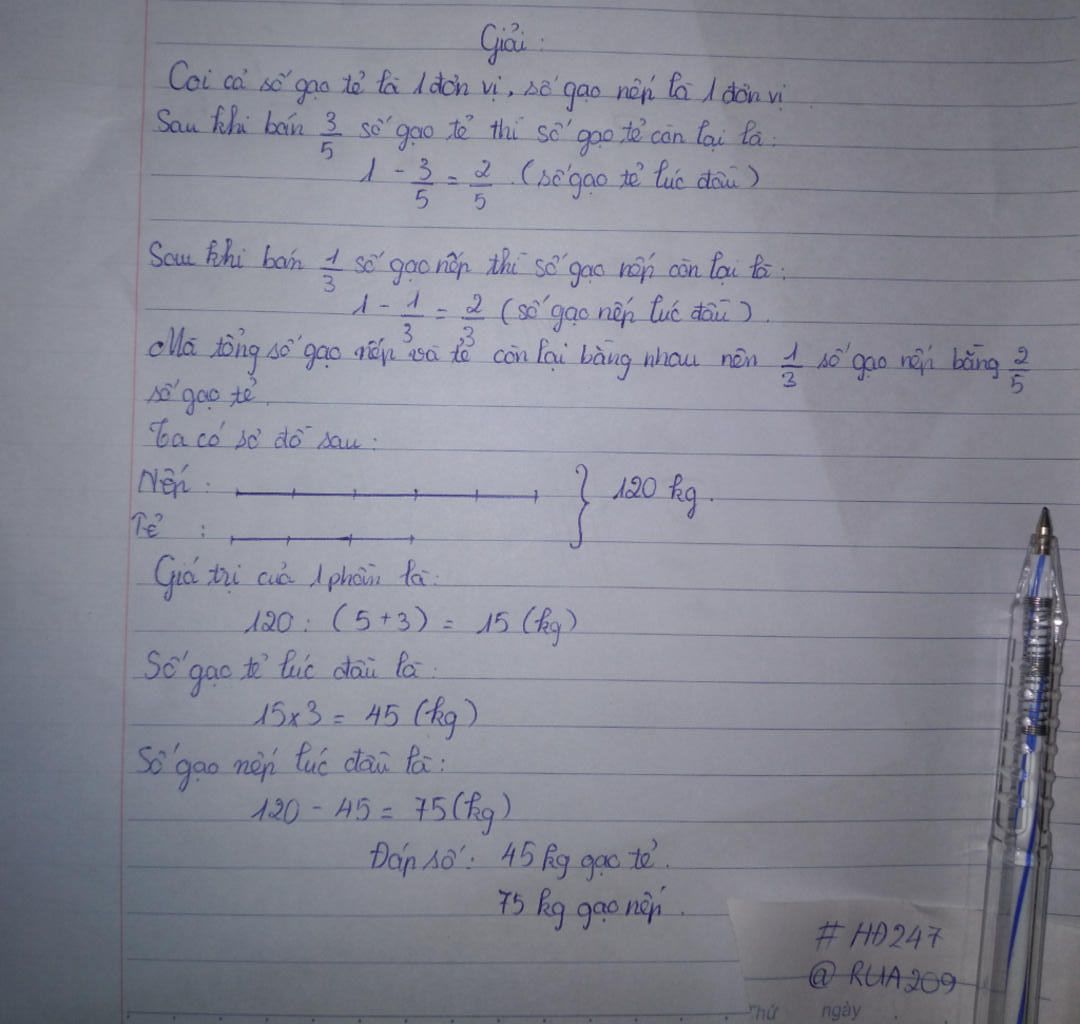 Giải:
Coi cả số gạo tẻ là 1 đơn vị, số gạo nếp là 1 đơn vị.
Sau khi bán 3/5 số gạo tẻ thì số gạo tẻ còn lại là:
1 - 3/5 = 2/5 (số gạo tẻ lúc đầu)
Sau khi bán 1/3 số gạo nếp thì số gạo nếp còn lại là:
1 - 1/3 = 2/3 (số gạo nếp lúc đầu).
Mà tổng số gạo nếp và tẻ còn lại bằng nhau nên 1/3 số gạo nếp bằng 2/5
số gạo tẻ.
Ta có sơ đồ sau:
Nếp: } 120 kg.
Tẻ:
Giá trị của 1 phần là:
120 : (5+3) = 15 (kg)
Số gạo tẻ lúc đầu là:
15 x 3 = 45 (kg)
Số gạo nếp lúc đầu là:
120 - 45 = 75 (kg)
Đáp số: 45 kg gạo tẻ.
75 kg gạo nếp.
# HĐ247
@ RUA209
Thứ ngày